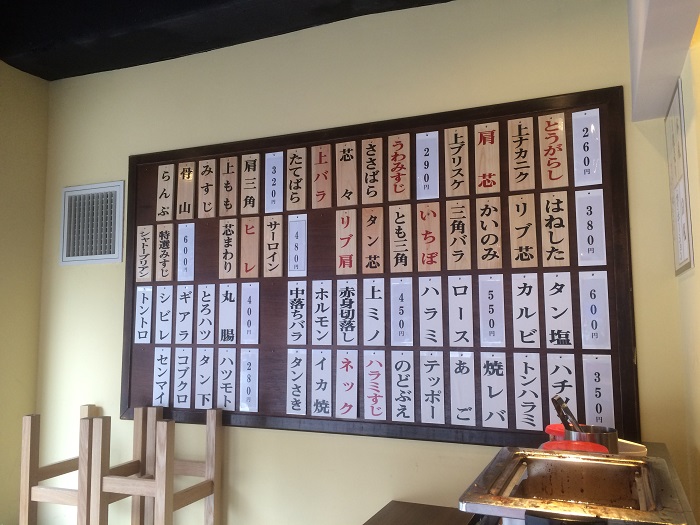 260円
とうがらし
上ナカニク
肩芯
上ブリスケ
290円
うわみすじ
ささばら
芯々
上バラ
たてばら
320円
肩三角
上もも
みすじ
丹山
らんぷ
380円
はねした
リブ芯
かいのみ
三角バラ
いちぼ
とも三角
タン芯
リブ肩
480円
サーロイン
ヒレ
芯まわり
600円
特選みすじ
シャトーブリアン
600円
タン塩
カルビ
550円
ロース
ハラミ
450円
上ミノ
赤身切落し
ホルモン
中落ちバラ
400円
丸腸
とろハツ
ギアラ
シビレ
トントロ
350円
ハチノ
トンハラミ
焼レバ
あご
テッポー
のどぶえ
ハラミすじ
ネック
イカ焼
タンさき
280円
ハツモト
タン下
コブクロ
センマイ